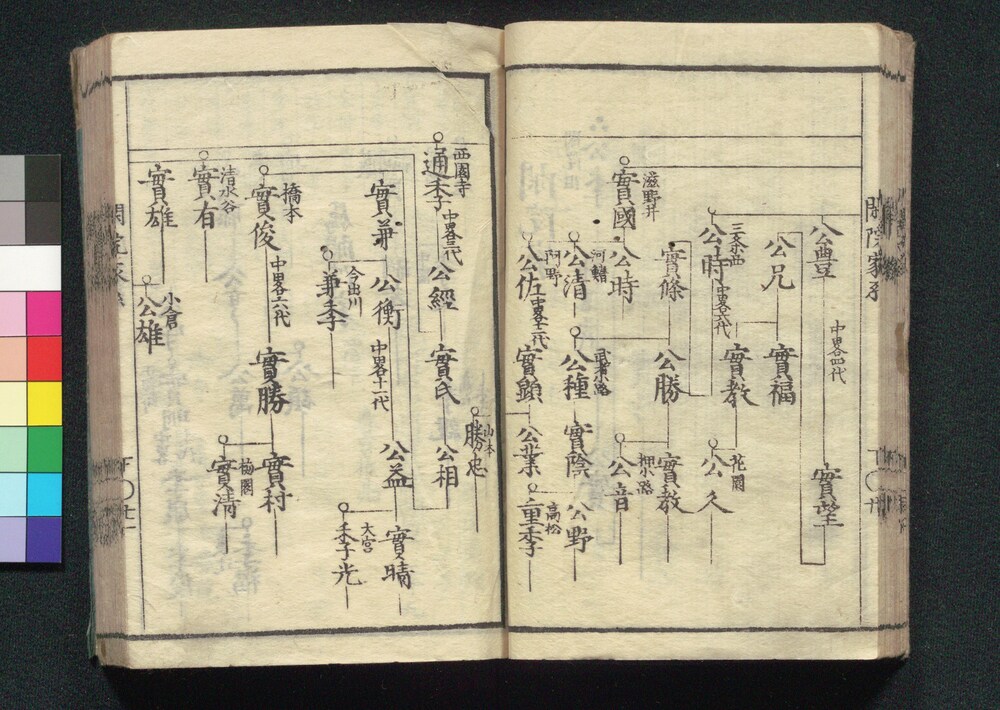 閑院家系
公豊
中畧四代
實望
公兄
實福
三条西
公時
中畧六代
實教
花園
公久
實條
公勝
實教
押小路
公音
滋野井
實國
公時
河鰭
公清
武者小路
公種
實陰
公野
阿野
公佐
中畧十二代
實顕
公業
高松
重季
西園寺
通季
中畧三代
公經
實氏
公相
山本
勝忠
實兼
公衡
中畧十一代
公益
實晴
大宮
季光
今出川
兼季
橋本
實俊
中畧六代
實勝
實村
梅園
實清
清水谷
實有
實雄
小倉
公雄